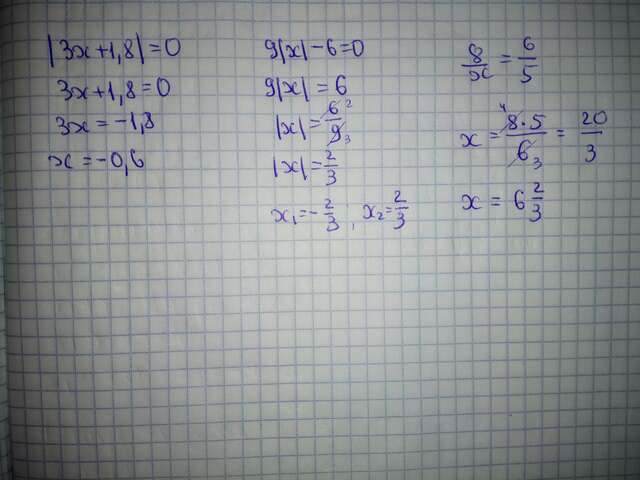 |3x+1,8|=0
3x+1,8=0
3x=-1,8
x=-0,6
9|x|-6=0
9|x|=6
|x|=6²/9³
|x|=2/3
x₁=-2/3, x₂=2/3
8/x=6/5
x=⁴8·5/6³=20/3
x=6 2/3